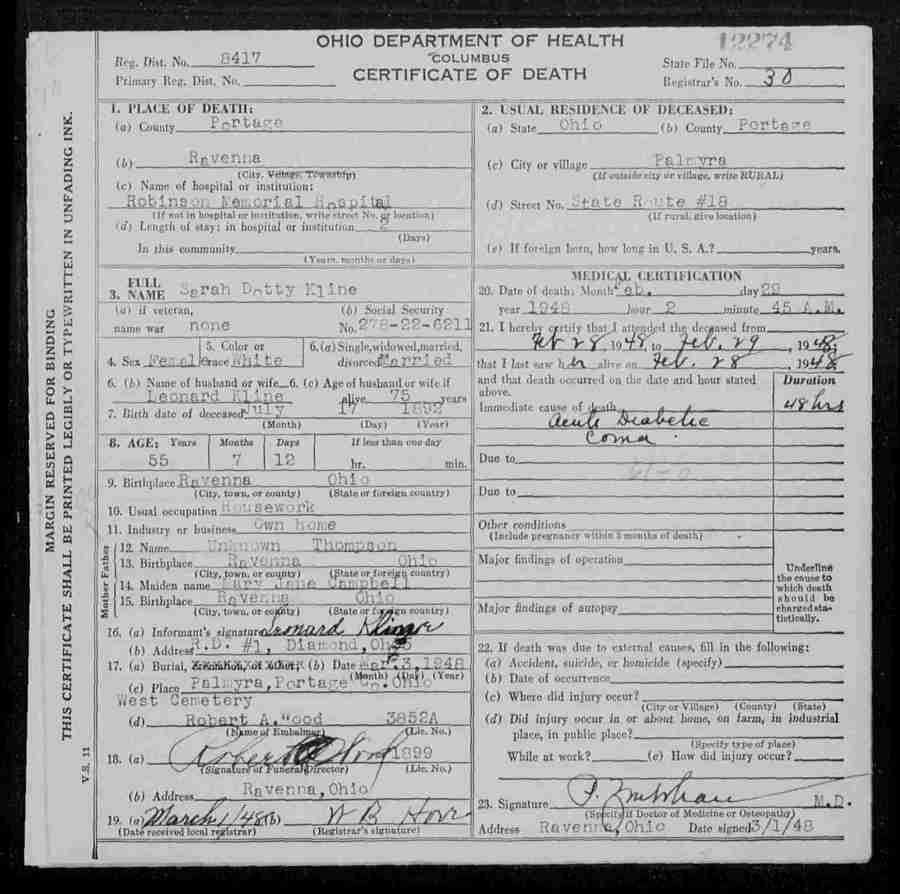 12274
OHIO DEPARTMENT OF HEALTH
COLUMBUS
CERTIFICATE OF DEATH
Reg. Dist. No. 8417
Primary Reg. Dist. No.
State File No.
Registrar's No. 30
MARGIN RESERVED FOR BINDING
THIS CERTIFICATE SHALL BE PRINTED LEGIBLY OR TYPEWRITTEN IN UNFADING INK.
V.S. 11
1. PLACE OF DEATH:
(a) County Portage
(b) Ravenna
(City, Village, Township)
(c) Name of hospital or institution:
Robinson Memorial Hospital
(If not in hospital or institution, write street No. or location)
(d) Length of stay: in hospital or institution 2
(Days)
In this community
(Years, months or days)
3. FULL NAME Sarah Dotty Kline
(a) If veteran, name war none
(b) Social Security No. 278-22-6211
4. Sex Female
5. Color or race White
6. (a) Single, widowed, married, divorced Married
6. (b) Name of husband or wife Leonard Kline
6. (c) Age of husband or wife if alive 75 years
7. Birth date of deceased July 17 1892
(Month) (Day) (Year)
8. AGE: Years Months Days If less than one day
55 7 12 hr. min.
9. Birthplace Ravenna Ohio
(City, town, or county) (State or foreign country)
10. Usual occupation Housework
11. Industry or business Own home
Father
12. Name Unknown Thompson
13. Birthplace Ravenna Ohio
(City, town, or county) (State or foreign country)
Mother
14. Maiden name Mary Jane Campbell
15. Birthplace Ravenna Ohio
(City, town, or county) (State or foreign country)
16. (a) Informant's signature Leonard
(b) Address R.D. #1, Diamond, Ohio
17. (a) Burial, (b) Date Mar. 3, 1948
(Month) (Day) (Year)
(c) Place Palmyra, Portage Co. Ohio
West Cemetery
(d) Robert A. Wood 3852A
(Name of Embalmer) (Lic. No.)
18. (a) Robert Wood 1899
(Signature of Funeral Director) (Lic. No.)
(b) Address Ravenna, Ohio
19. (a) March 1/48 (b) W B
(Date received local registrar) (Registrar's signature)
2. USUAL RESIDENCE OF DECEASED:
(a) State Ohio (b) County Portage
(c) City or village Palmyra
(If outside city or village, write RURAL)
(d) Street No. State Route #18
(If rural, give location)
(e) If foreign born, how long in U. S. A.? years.
MEDICAL CERTIFICATION
20. Date of death: Month Feb. day 29
year 1948 hour 2 minute 45 A.M.
21. I hereby certify that I attended the deceased from
Feb 28, 1948, to Feb. 29, 1948;
that I last saw her alive on Feb. 28, 1948
and that death occurred on the date and hour stated above.
Duration
Immediate cause of death 48 hrs
Acute Diabetic
Coma
Due to
Due to
Other conditions
(Include pregnancy within 3 months of death)
Major findings of operation
Underline the cause to which death should be charged statistically.
Major findings of autopsy
22. If death was due to external causes, fill in the following:
(a) Accident, suicide, or homicide (specify)
(b) Date of occurrence
(c) Where did injury occur?
(City or Village) (County) (State)
(d) Did injury occur in or about home, on farm, in industrial
place, in public place?
(Specify type of place)
While at work? (e) How did injury occur?
23. Signature M.D.
(Specify if Doctor of Medicine or Osteopathy)
Address Ravenna, Ohio Date signed 3/1/48